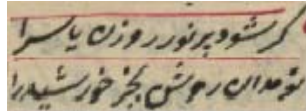 گر شود پر نور روزن یا سرا
تو مدان روشن بجز خورشید را